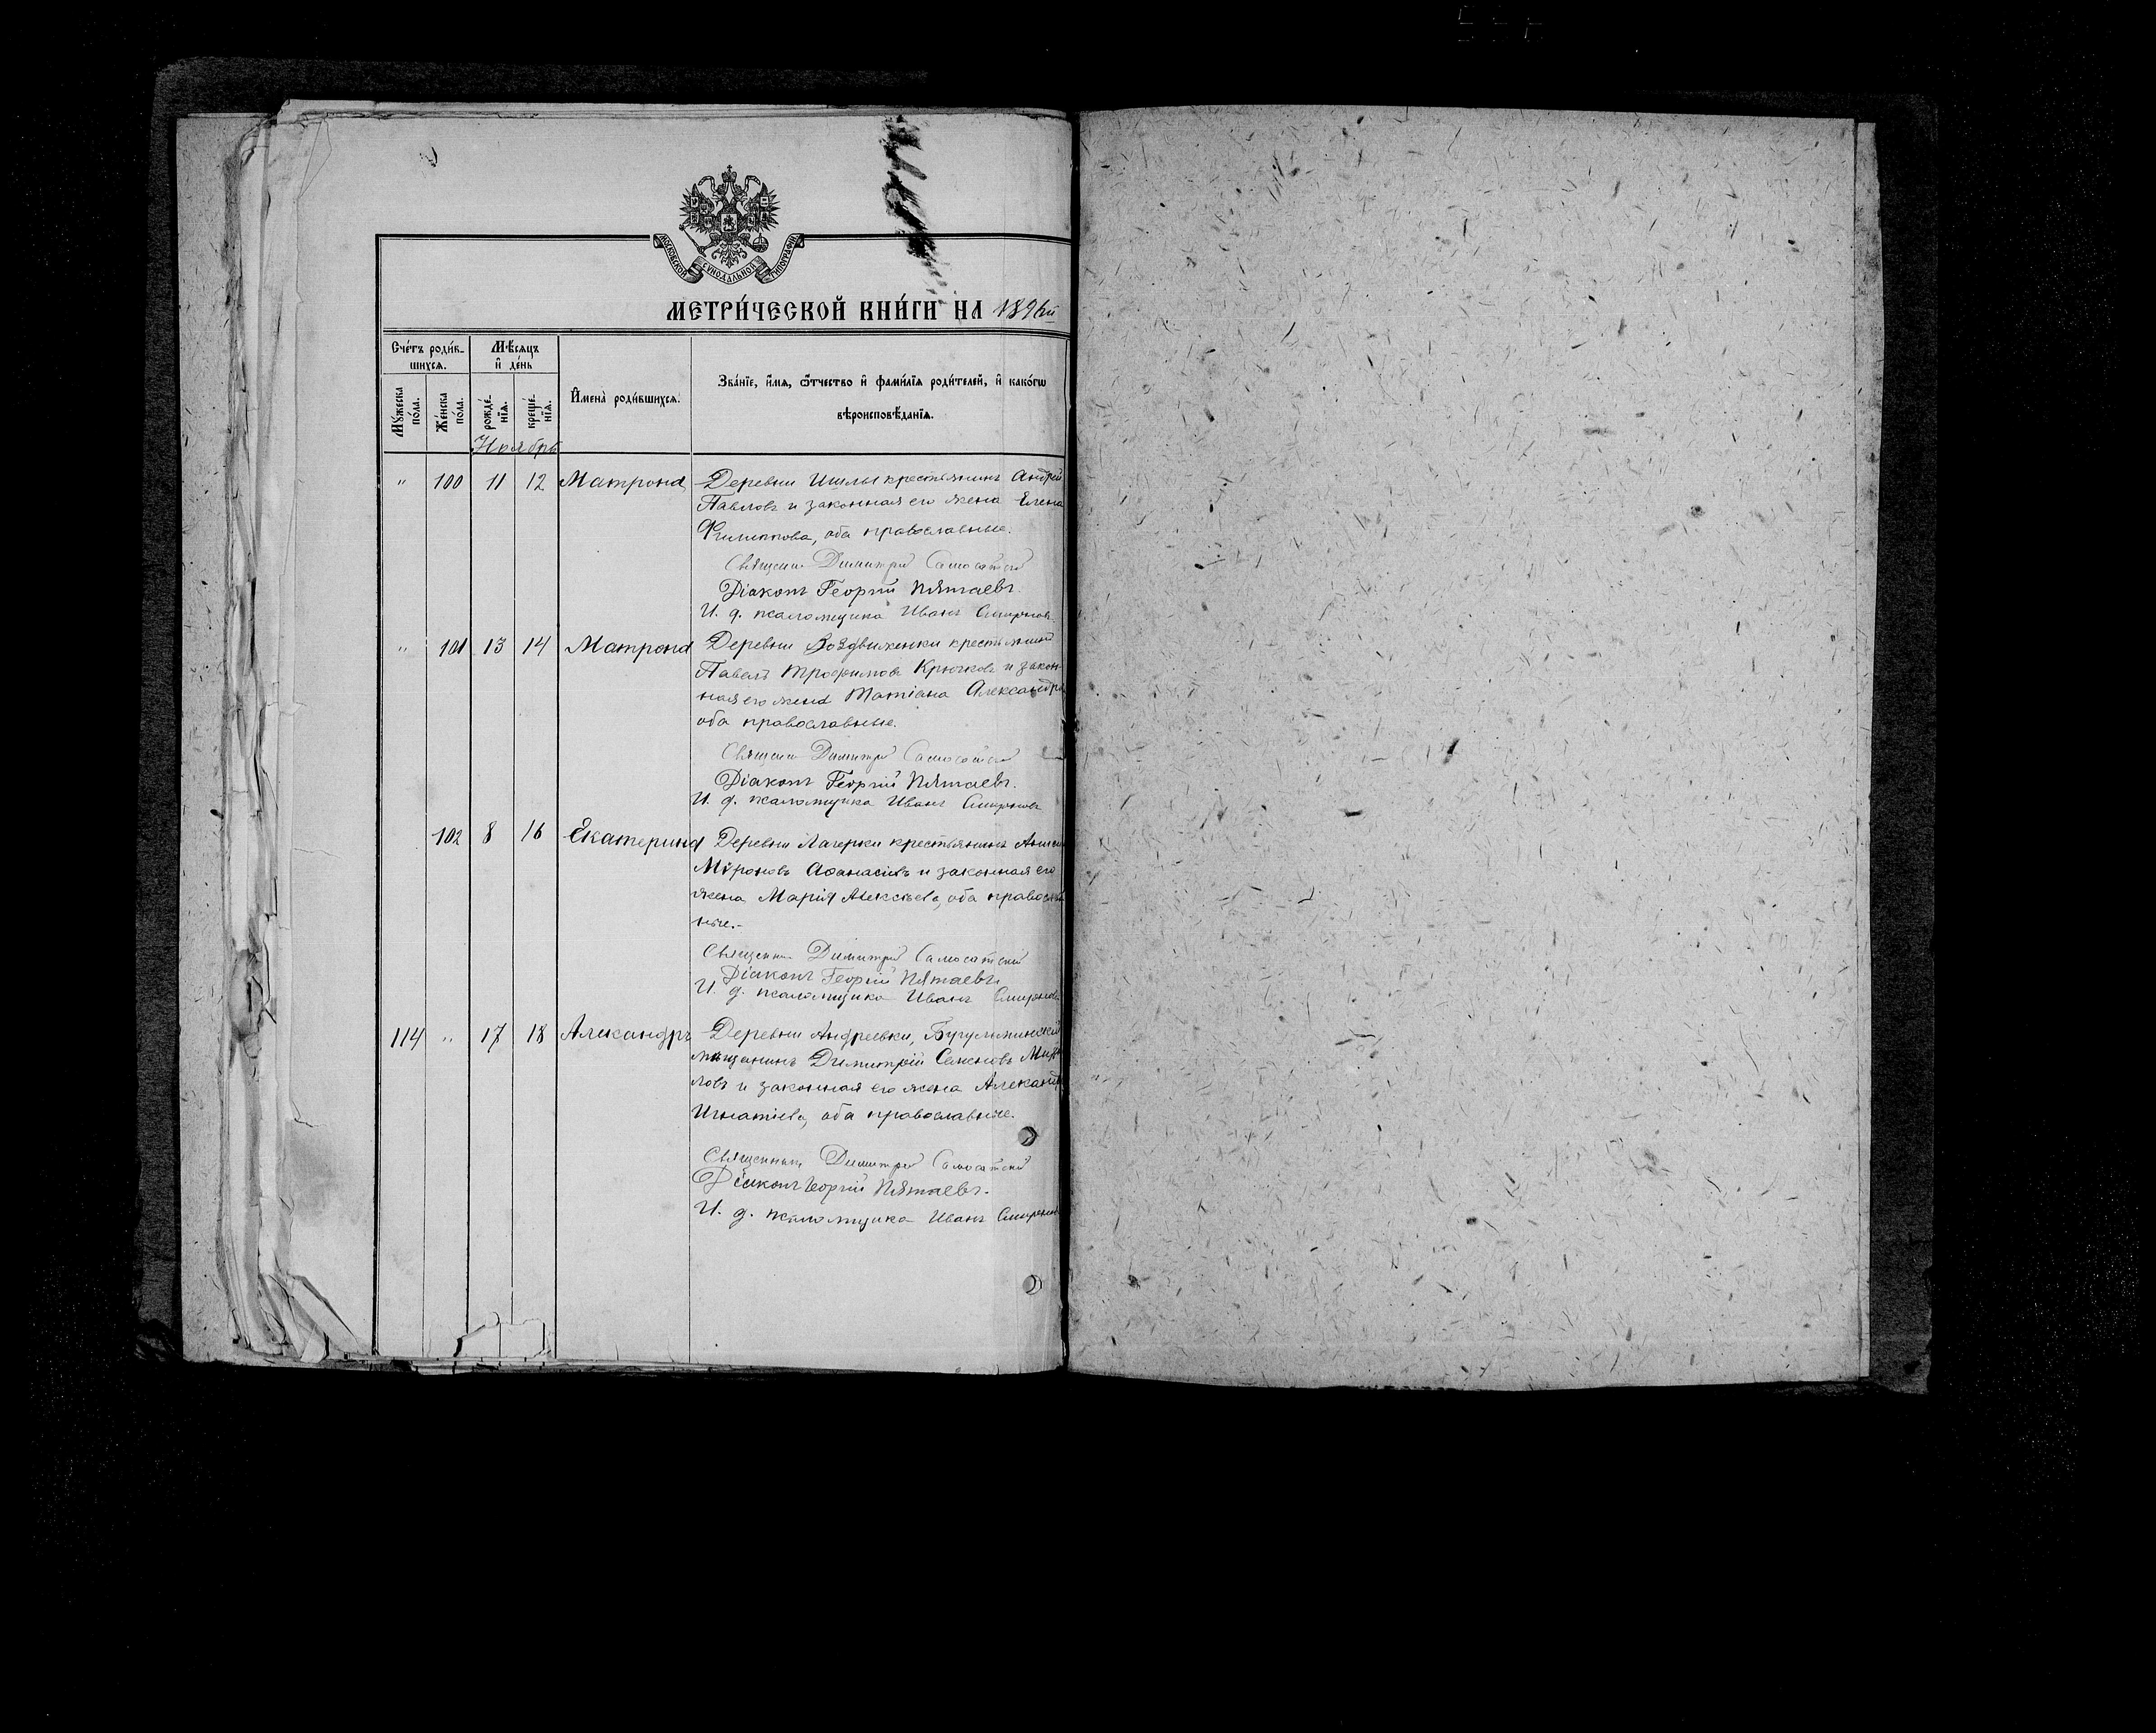 МОСКОВСКОЙ СѴНОДАЛЬНОЙ ТИПОГРАФІИ
МЕТРИ́ЧЕСКОЙ КНИ́ГИ НА 1896й
Сче́тъ роди́в-
шихся.
Мѣ́сяцъ
и҆ де́нь
Мꙋ́жеска
по́ла.
Же́нска
по́ла.
рожде́-
нїѧ.
креще́-
нїѧ.
И҆мена̀ роди́вшихсѧ.
Зва́нїе, и҆́мѧ, ѻ҆́тчество и҆ фами́лїѧ роди́телей, и҆ како́гѡ
вѣроисповѣ́данїѧ.
Ноябрь
" 100 11 12 Матрона Деревни Ишлы крестьянинъ Андрей
Павловъ и законная его жена Елена
Филиппова, оба православные.
Священникъ Димитрій Самосатскій
Діаконъ Георгій Пятаевъ.
И. д. псаломщика Иванъ Смирновъ.
" 101 13 14 Матрона Деревни Воздвиженки крестьянинъ
Павелъ Трофимовъ Крючковъ и закон-
ная его жена Татіана Александро
оба православные.
Священникъ Димитрій Самосатскій
Діаконъ Георгій Пятаевъ.
И. д. псаломщика Иванъ Смирновъ
102 8 16 Екатерина Деревни Лагерки крестьянинъ
Мѵроновъ Аѳанасіевъ и законная его
жена Марія Алексѣева, оба православ
ные.-
Священникъ Димитрій Самосатскій
Діаконъ Георгій Пятаевъ.
И. д. псаломщика Иванъ Смирновъ
114 " 17 18 Александръ Деревни Андреевки, Бугульминскій
мѣщанинъ Димитрій Семеновъ
ловъ и законная его жена Александ
Игнатіева, оба православные.
Священникъ Димитрій Самосатскій
Діаконъ Георгій Пятаевъ.
И. д. псаломщика Иванъ Смирновъ